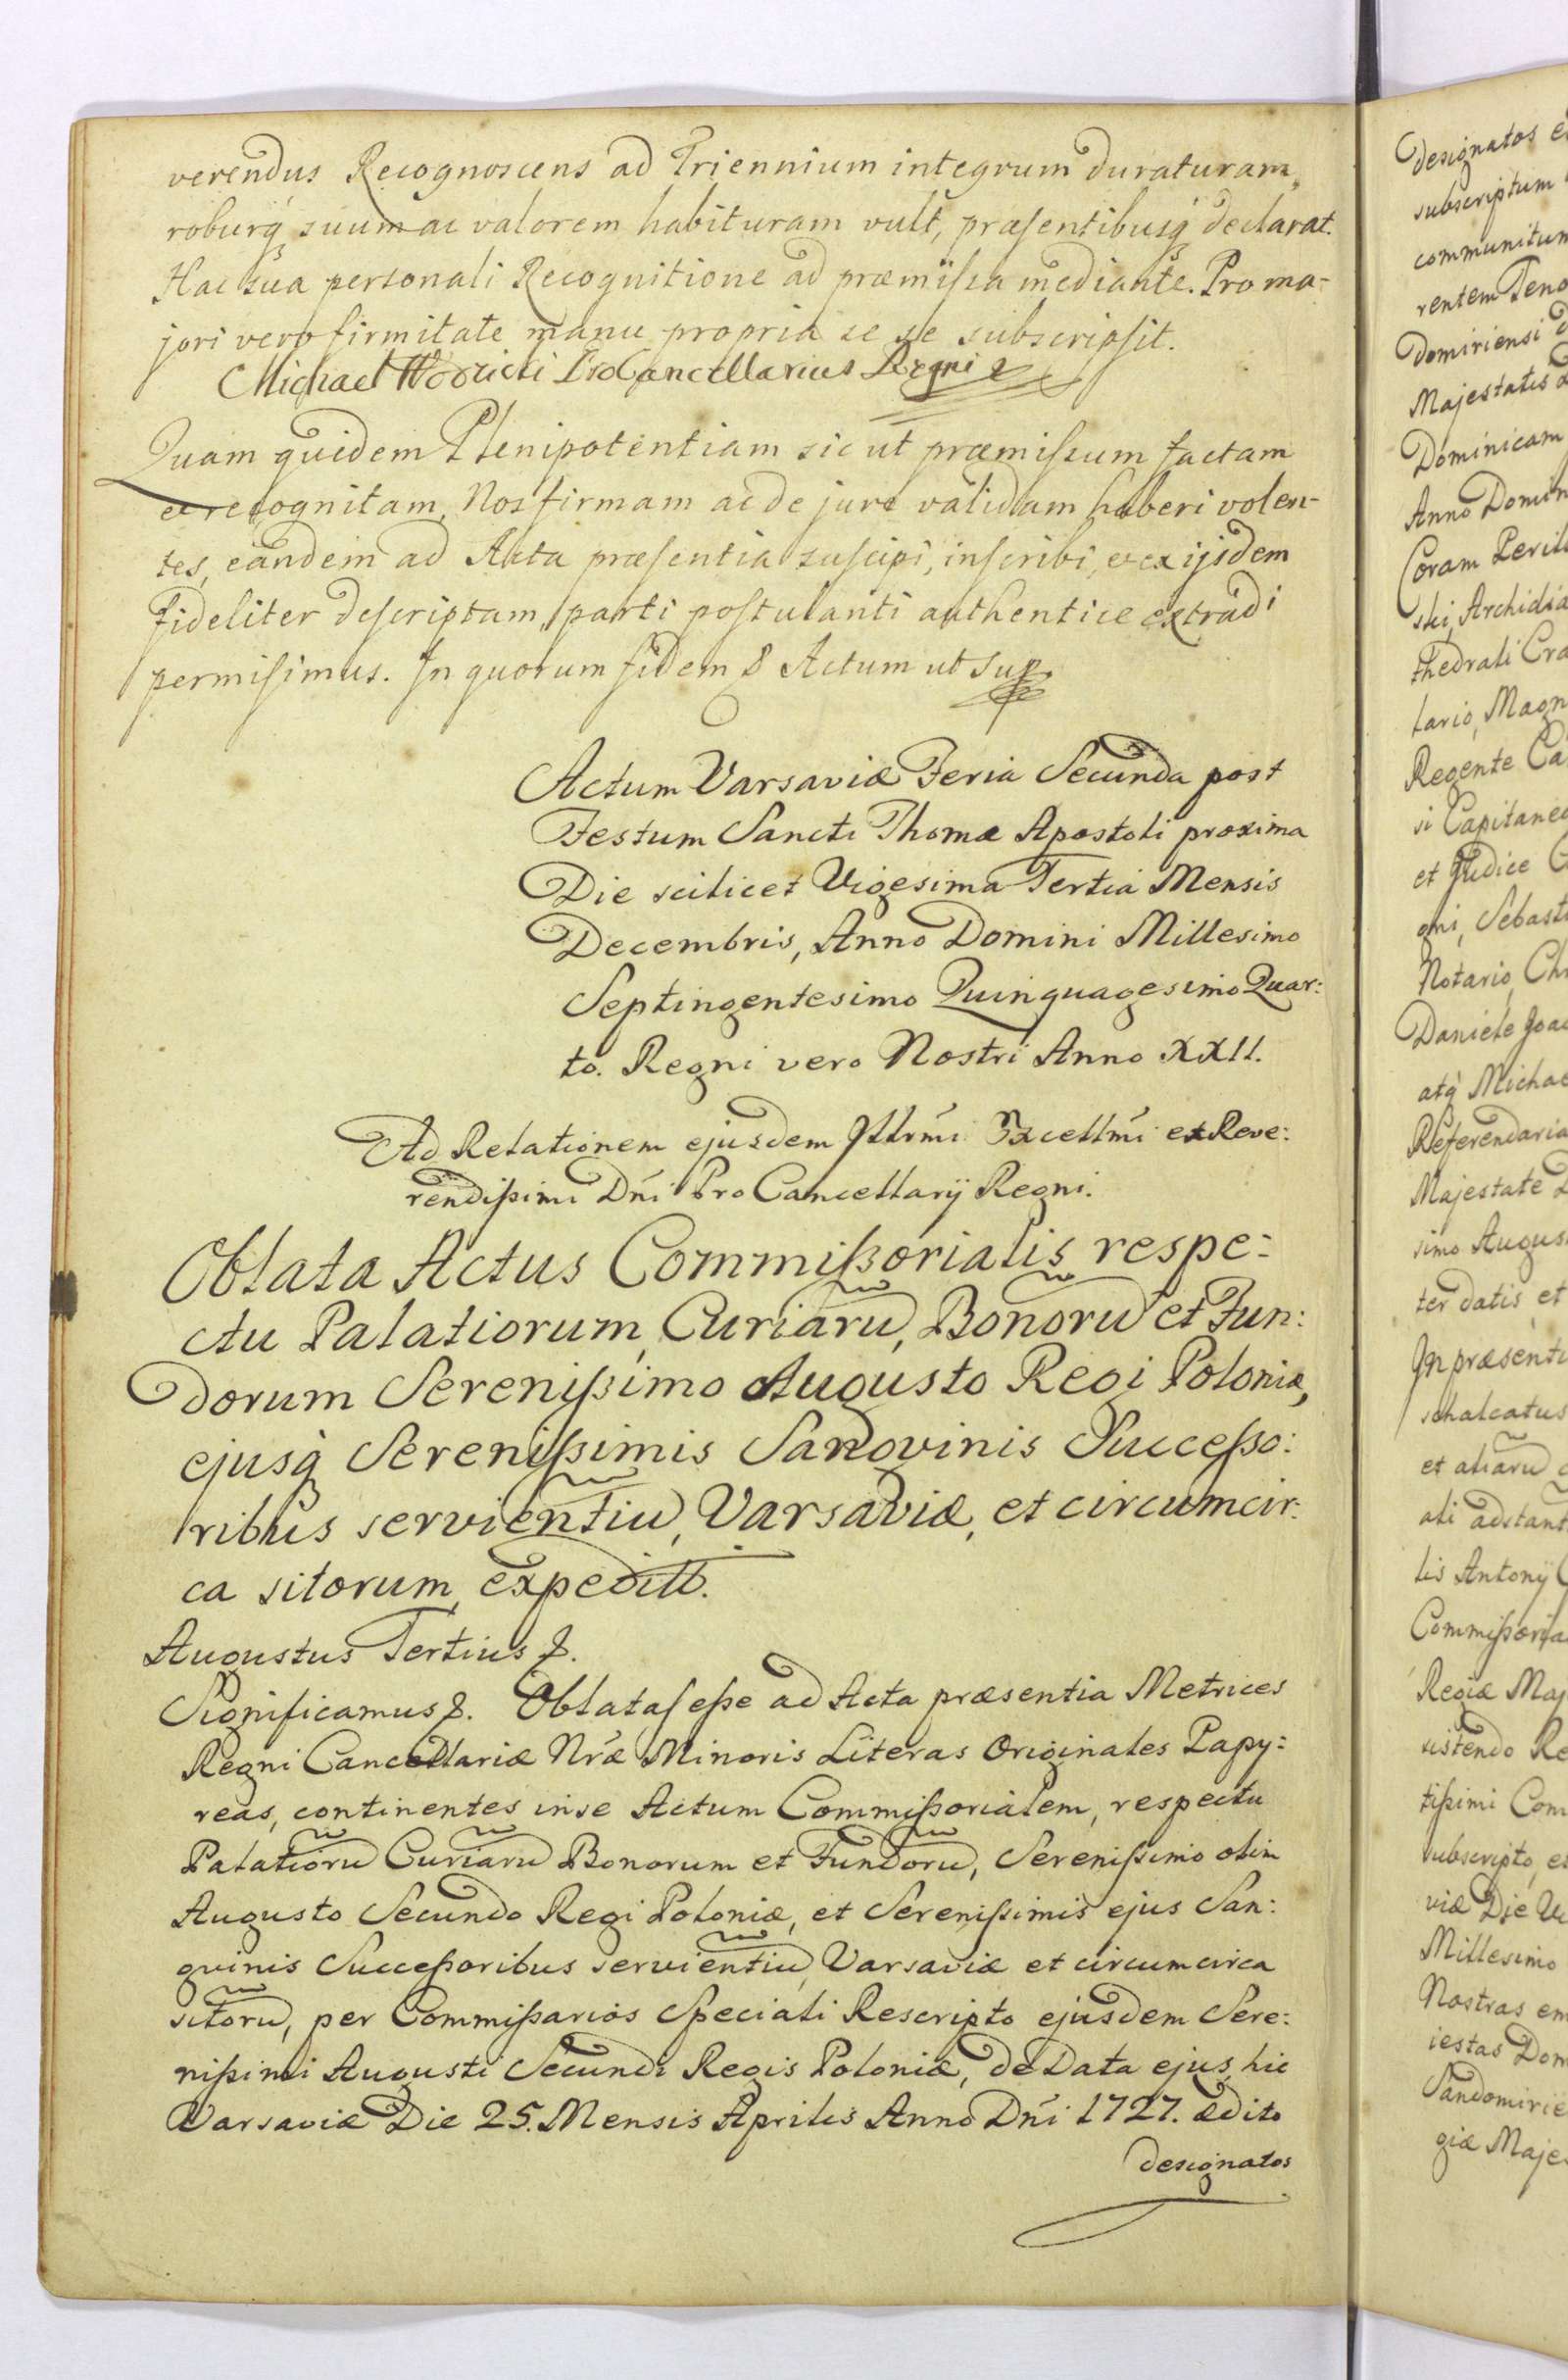 verendus Recognoscens ad Triennium integrum duraturam,
roburq́ suum ac valorem habituram vult, præsentibusq́ declarat.
Hac sua personali Recognitione ad præmissa mediante. Pro ma-
jori vero firmitate manu propria se se subscripsit.
Michael Wodzicki ProCancellarius Regni
Quam quidem Plenipotentiam sic ut præmissum factam
et recognitam, Nos firmam ac de jure validam haberi volen-
tes, eandem ad Acta præsentia suscipi, inscribi, et ex ijsdem
fideliter descriptam, parti postulanti authentice extradi
permisimus. In quorum fidem & Actum ut sup
Actum Varsaviæ Feria Secunda post
Festum Sancti Thomæ Apostoli proxima
Die scilicet Vigesima Tertia Mensis
Decembris, Anno Domini Millesimo
Septingentesimo Quinquagesimo Quar:
to. Regni vero Nostri Anno XXII.
Ad Relationem ejusdem Illrm̃i Excellm̃i et Reve:
rendissimi Dńi ProCancellarij Regni.
Oblata Actus Commissorialis respe:
ctu Palatiorum, Curiarũ, Bonorũ et Fun:
dorum Serenissimo Augusto Regi Poloniæ,
ejusq́ Serenissimis Sanqvinis Successo:
ribus servientiũ, Varsaviæ, et circumcir:
ca sitorum, expediti.
Augustus Tertius &.
Significamus &. Oblatas esse ad Acta præsentia Metrices
Regni Cancellariæ Nræ Minoris Literas Originales Papy:
reas, continentes in se Actum Commissorialem, respectu
Palatiorũ Curiarũ Bonorum et Fundorũ, Serenissimo olim
Augusto Secundo Regi Poloniæ, et Serenissimis ejus San:
gvinis Successoribus servientiũ, Varsaviæ et circumcirca
sitorũ, per Commissarios Speciali Rescripto ejusdem Sere:
nissimi Augusti Secundi Regis Poloniæ, de Data ejus, hic
Varsaviæ Die 25. Mensis Aprilis Anno Dńi 1727. ædito
designatos
designatos
subscriptum
communitum
Majestatis
Dominicam
Anno
Coram
Regente
et Judice
Notario
Daniele
atq́
Majestate
In
et aliarũ
lis Antonij
Regiæ
sistendo
tissimi
subscripto
viæ Die
Millesimo
Nostras
giæ